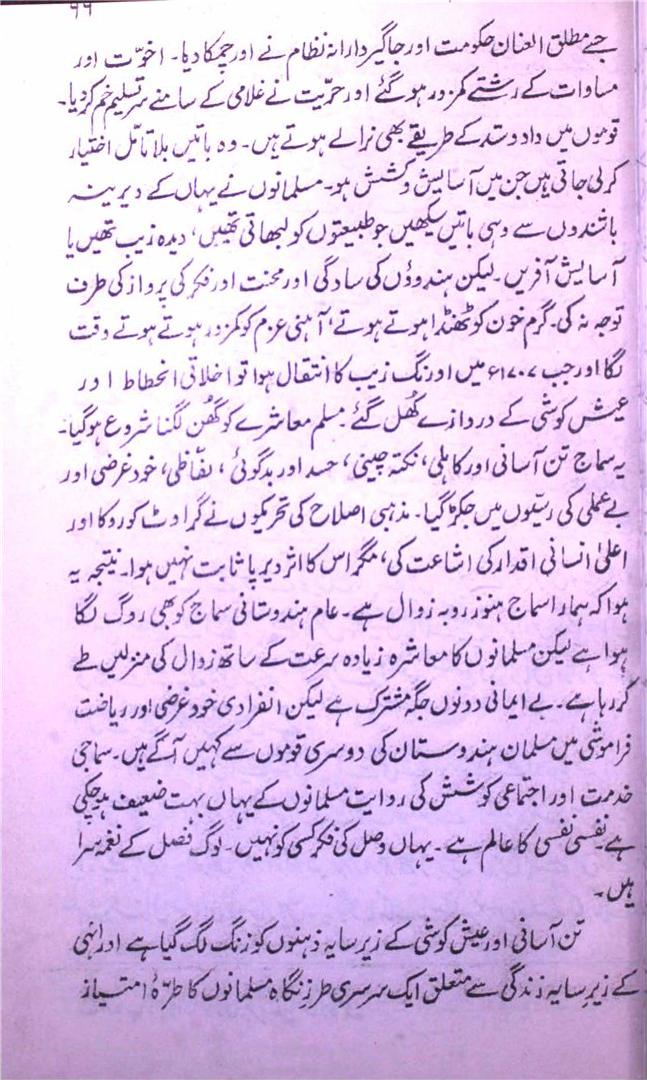 ۹۹
جسے مطلق العنان حکومت اور جاگیردارانہ نظام نے اور چمکا دیا۔ اخوّت اور
مساوات کے رشتے کمزور ہو گئے اور حرّیت نے غلامی کے سامنے سرِ تسلیم خم کر دیا۔
قوموں میں داد و ستد کے طریقے بھی نرالے ہوتے ہیں۔ وہ باتیں بلا تامّل اختیار
کر لی جاتی ہیں جن میں آسایش و کشش ہو۔ مسلمانوں نے یہاں کے دیرینہ
باشندوں سے وہی باتیں سیکھیں جو طبیعتوں کو لبھاتی تھیں، دیدہ زیب تھیں یا
آسایش آفریں۔ لیکن ہندوؤں کی سادگی اور محنت اور فکر کی پرواز کی طرف
توجہ نہ کی۔ گرم خون کو ٹھنڈا ہوتے ہوتے، آہنی عزم کو کمزور ہوتے ہوتے وقت
لگا اور جب ۱۷۰۷ء میں اورنگ زیب کا انتقال ہوا تو اخلاقی انحطاط اور
عیش کوشی کے دروازے کُھل گئے۔ مسلم معاشرے کو گھن لگنا شروع ہو گیا۔
یہ سماج تن آسانی اور کاہلی، نکتہ چینی، حسد اور بدگوئی، لفّاظی، خود غرضی اور
بے عملی کی رسّیوں میں جکڑ گیا۔ مذہبی اصلاح کی تحریکوں نے گراوٹ کو روکا اور
اعلیٰ انسانی اقدار کی اشاعت کی، مگر اس کا اثر دیرپا ثابت نہیں ہوا۔ نتیجہ یہ
ہوا کہ ہمارا سماج ہنوز رو بہ زوال ہے۔ عام ہندوستانی سماج کو بھی روگ لگا
ہوا ہے لیکن مسلمانوں کا معاشرہ زیادہ سرعت کے ساتھ زوال کی منزلیں طے
کر رہا ہے۔ بے ایمانی دونوں جگہ مشترک ہے لیکن انفرادی خود غرضی اور ریاضت
فراموشی میں مسلمان ہندوستان کی دوسری قوموں سے کہیں آگے ہیں۔ سماجی
خدمت اور اجتماعی کوشش کی روایت مسلمانوں کے یہاں بہت ضعیف ہو چکی
ہے۔ نفسی نفسی کا عالم ہے۔ یہاں وصل کی فکر کسی کو نہیں۔ لوگ فصل کے نغمہ سرا
ہیں۔
تن آسانی اور عیش کوشی کے زیرِ سایہ ذہنوں کو زنگ لگ گیا ہے اور انہی
کے زیرِ سایہ زندگی سے متعلق ایک سرسری طرزِ نگاہ مسلمانوں کا طرّۂ امتیاز